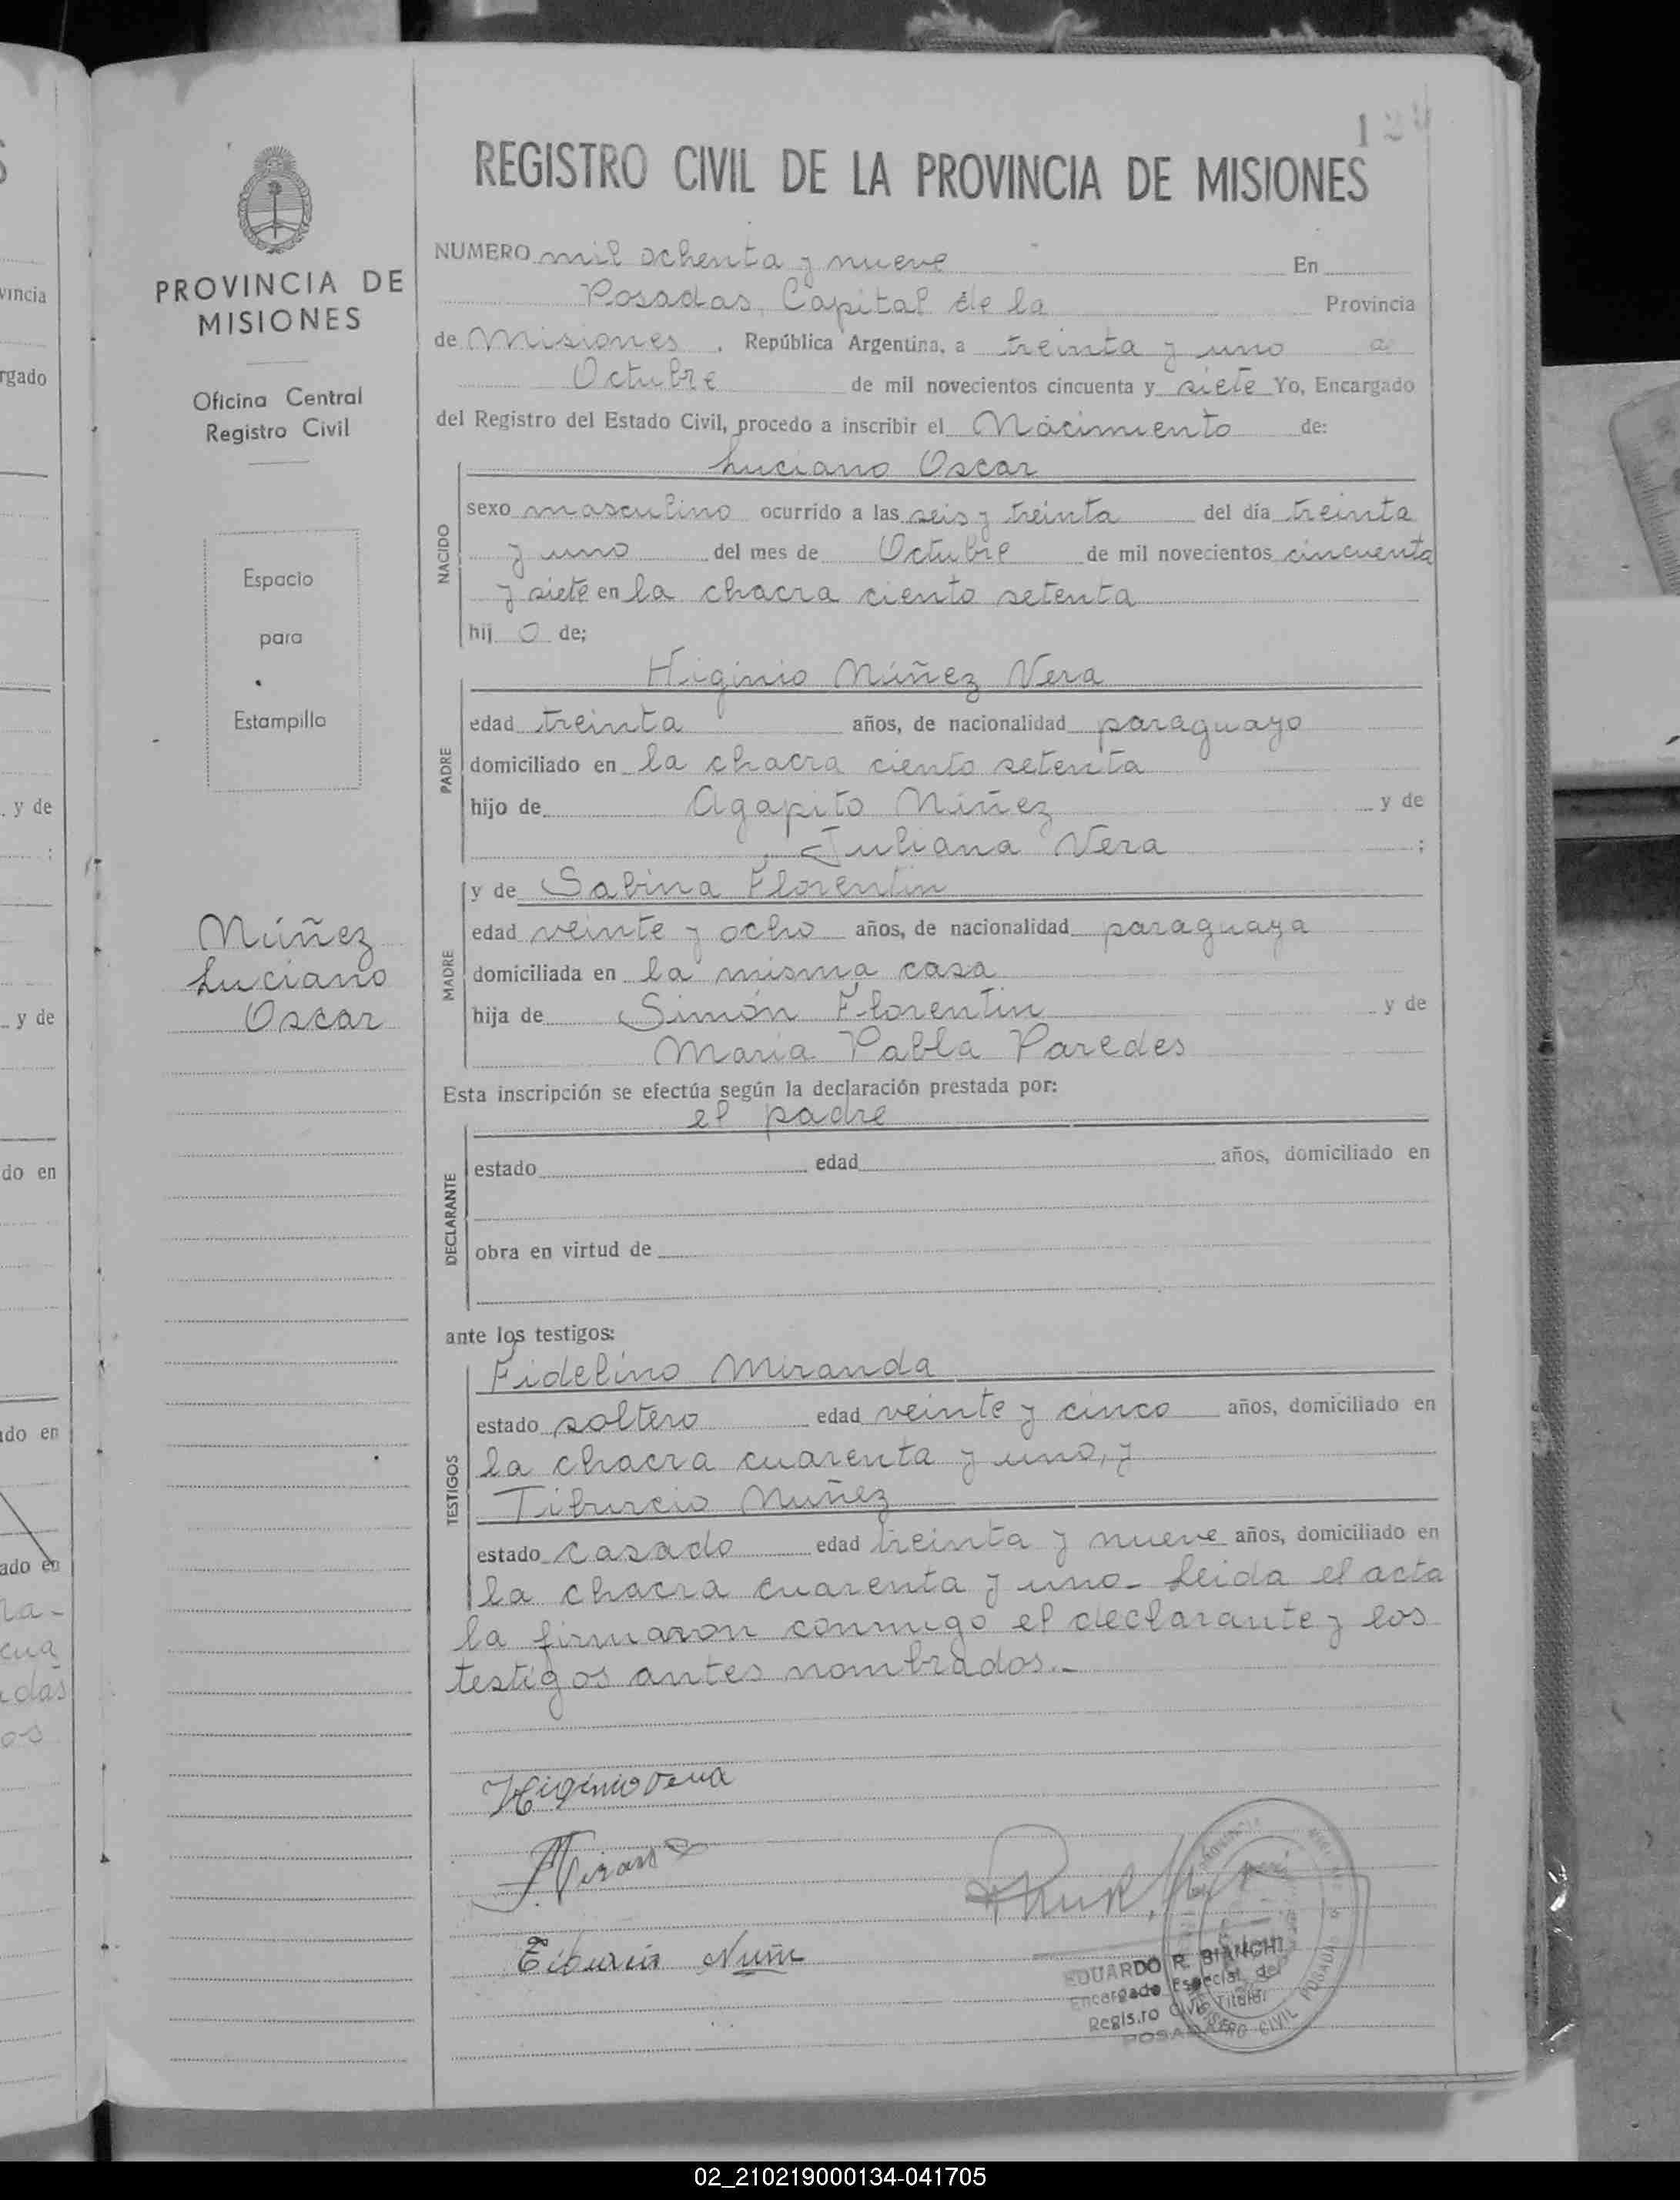 REGISTRO CIVIL DE LA PROVINCIA DE MISIONES
PROVINCIA DE
MISIONES
Oficina Central
Registro Civil
Espacio
para
Estampilla
Núñez
Luciano
Oscar
NUMERO mil ochenta y nueve En
Posadas, Capital de la Provincia
de Misiones, República Argentina, a treinta y uno a
Octubre de mil novecientos cincuenta y siete Yo, Encargado
del Registro del Estado Civil, procedo a inscribir el Nacimiento de:
Luciano Oscar
NACIDO
sexo masculino ocurrido a las seis y treinta del día treinta
y uno del mes de Octubre de mil novecientos cincuenta
y siete en la chacra ciento setenta
hij o de;
Higinio Núñez Vera
PADRE
edad treinta años, de nacionalidad paraguayo
domiciliado en la chacra ciento setenta
hijo de Agapito Núñez y de
Juliana Vera ;
MADRE
y de Sabina Florentín
edad veinte y ocho años, de nacionalidad paraguaya
domiciliada en la misma casa
hija de Simón Florentín y de
María Pabla Paredes
Esta inscripción se efectúa según la declaración prestada por:
el padre
DECLARANTE
estado edad años, domiciliado en
obra en virtud de
ante los testigos:
Fidelino Miranda
TESTIGOS
estado soltero edad veinte y cinco años, domiciliado en
la chacra cuarenta y uno, y
Tiburcio Nuñez
estado casado edad treinta y nueve años, domiciliado en
la chacra cuarenta y uno- Leida el acta
la firmaron conmigo el declarante y los
testigos antes nombrados.-
Higinio Vera
Tiburcio Nuñe
EDUARDO R. BIANCHI
Encargado Especial del
Regis.ro Civil Titular
POSADAS
02_210219000134-041705